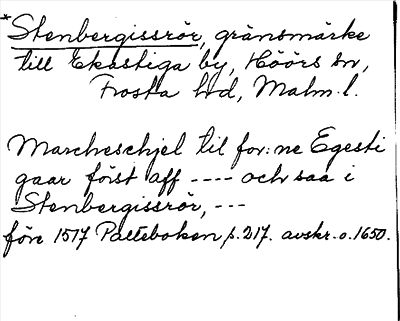 *Stenbergissrör, gränsmärke
till Ekastiga by, Höörs sn,
Frosta hd, Malm. l.
Marcheschjel til for:ne Egesti
gaar först aff ---- och saa i
Stenbergissrör, ---
före 1517 Palteboken p. 217. avskr. o. 1650.